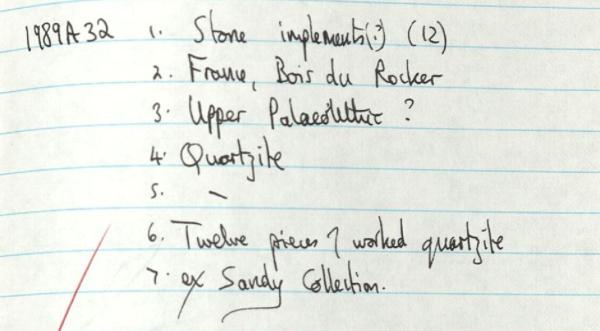 1989A.32 1. Stone implements(?) (12)
2. France, Bois du Rocker
3. Upper Palaeolithic ?
4. Quartzite
5. –
6. Twelve pieces of worked quartzite
7. ex Sandy Collection.